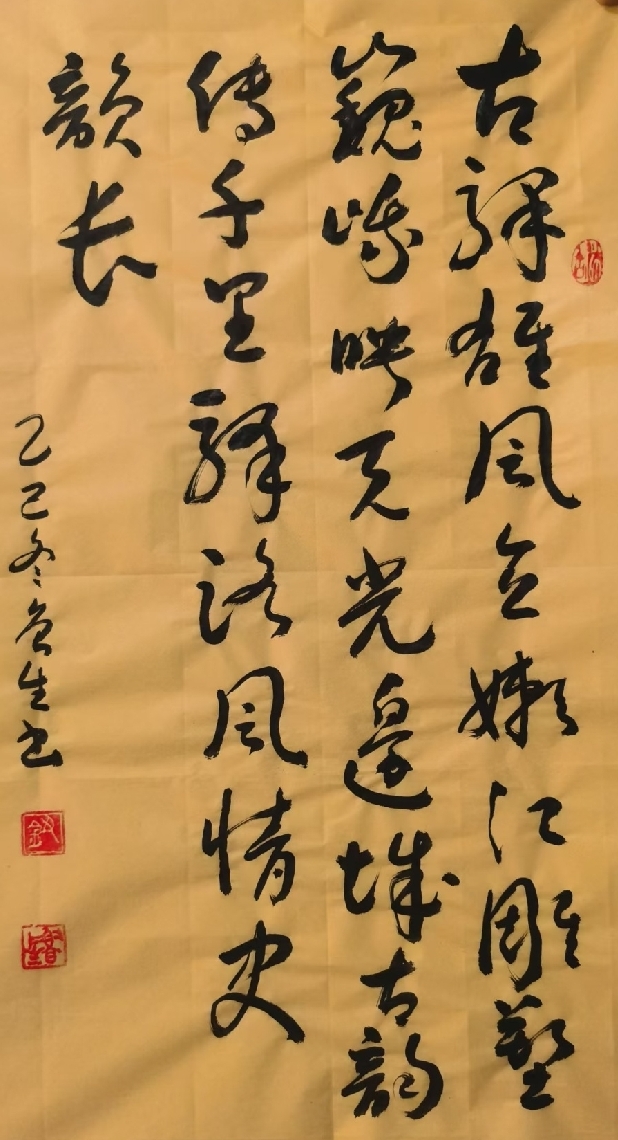 古驿雄风立嫩江雕塑
巍峨映天光边城古韵
传千里驿路风情史
韵长
乙巳冬 生书